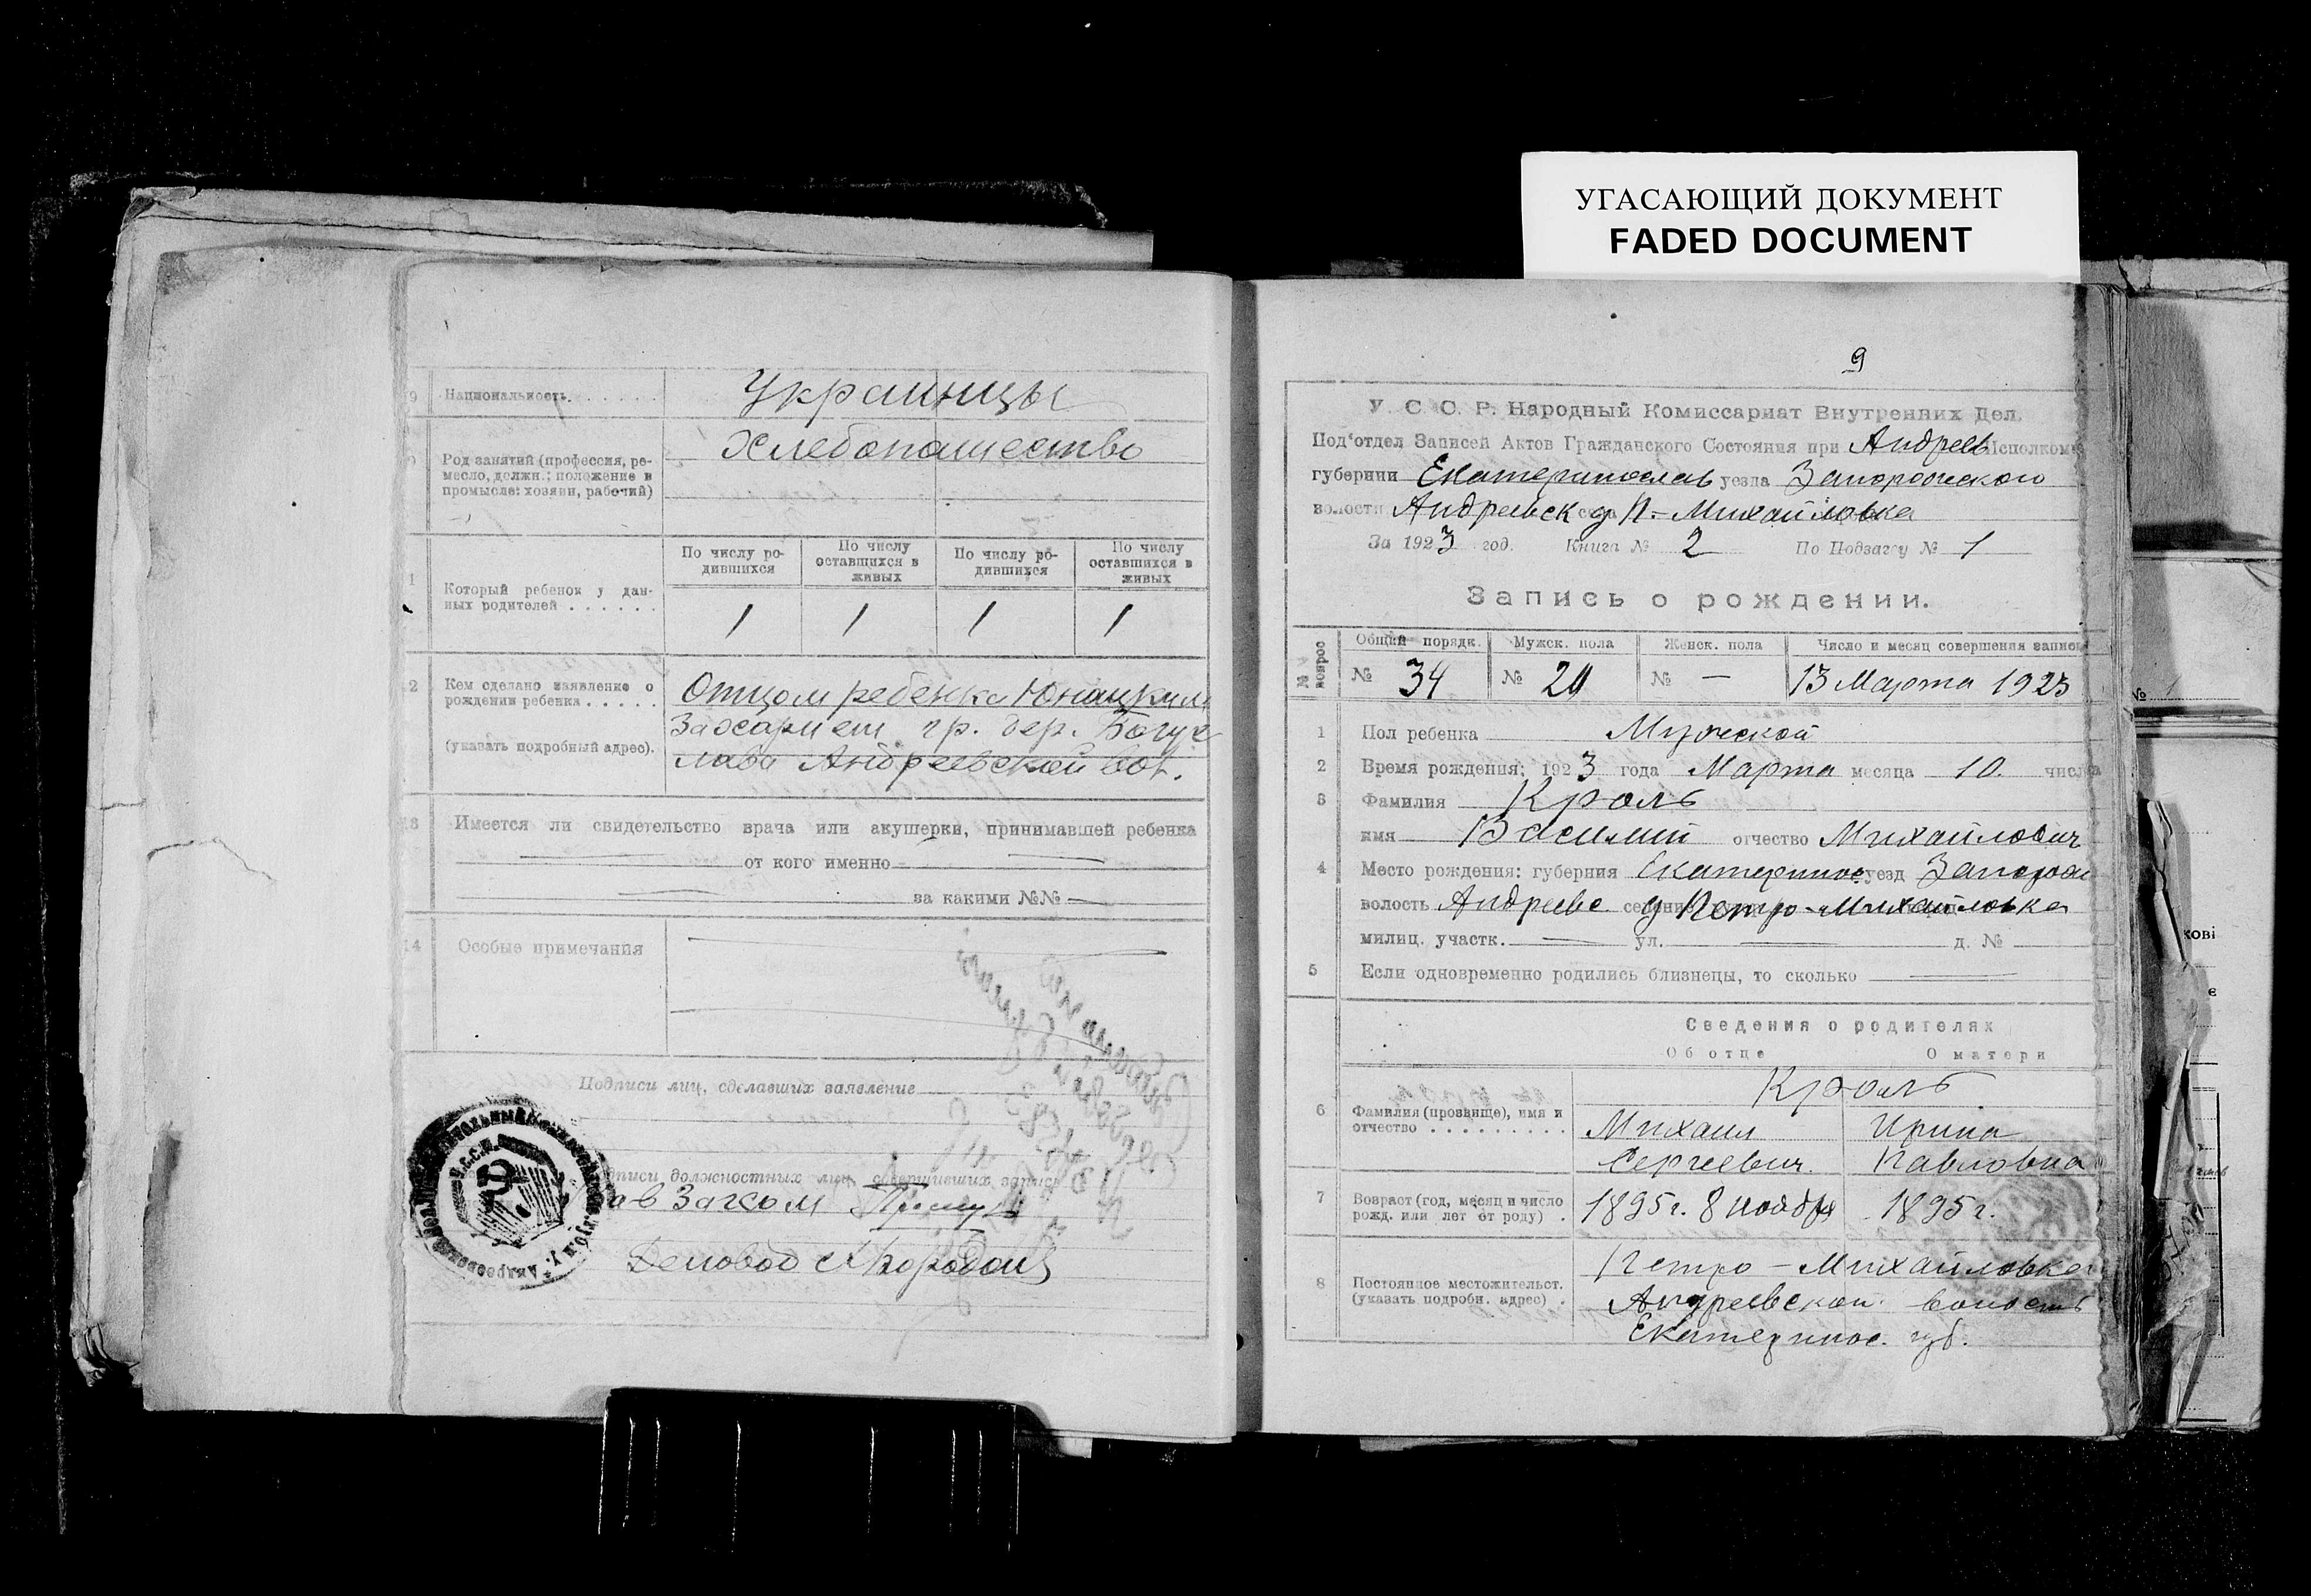 УГАСАЮЩИЙ ДОКУМЕНТ
FADED DOCUMENT
9 Национальность . . . . . . Украинцы
Род занятий (профессия, ре-
месло, должн.; положение в
промысле: хозяин, рабочий)
Хлебопашество
Который ребенок у дан-
ных родителей . . . . . .
По числу ро-
дившихся
По числу
оставшихся в
живых
По числу ро-
дившихся
По числу
оставшихся в
живых
1 1 1 1
2 Кем сделано заявление о
рождении ребенка . . . . .
(указать подробный адрес).
Отцом ребенка Юнацким
Захарием гр. дер. Богус
лава Андреевской вол.
13 Имеется ли свидетельство врача или акушерки, принимавшей ребенка
от кого именно
за какими №№
14 Особые примечания
Подписи лиц, сделавших заявление
Подписи должностных лиц, совершивших запись
Зав Загсом
Деловод
9
У. С. С. Р. Народный Комиссариат Внутренних Дел.
Под'отдел Записей Актов Гражданского Состояния при Андреев Исполкоме
губернии Екатеринослав уезда Запорожского
волости Андреевск села д П.-Михайловка
За 1923 год. Книга № 2 По Подзагсу № 1
Запись о рождении.
№№ вопрос
Общий порядк. Мужск. пола Женск. пола Число и месяц совершения записи
№ 34 № 20 № — 13 Марта 1923
1 Пол ребенка Мужеской
2 Время рождения: 1923 года Марта месяца 10. числа
3 Фамилия Кроль
имя Василий отчество Михайлович
4 Место рождения: губерния Екатеринос уезд Запорож
волость Андреевс селение д Петро-Михайловка
милиц. участк. — ул. — д. №
5 Если одновременно родились близнецы, то сколько
Сведения о родителях
Об отце О матери
6 Фамилия (прозвище), имя и
отчество . . . . . . . . .
Кроль
Михаил Ирина
Сергеевич. Павловна
7 Возраст (год, месяц и число
рожд. или лет от роду) .
1895 г. 8 ноября 1895 г.
8 Постоянное местожительст.
(указать подробн. адрес) .
Петро-Михайловка
Андреевской волость
Екатеринос. губ.